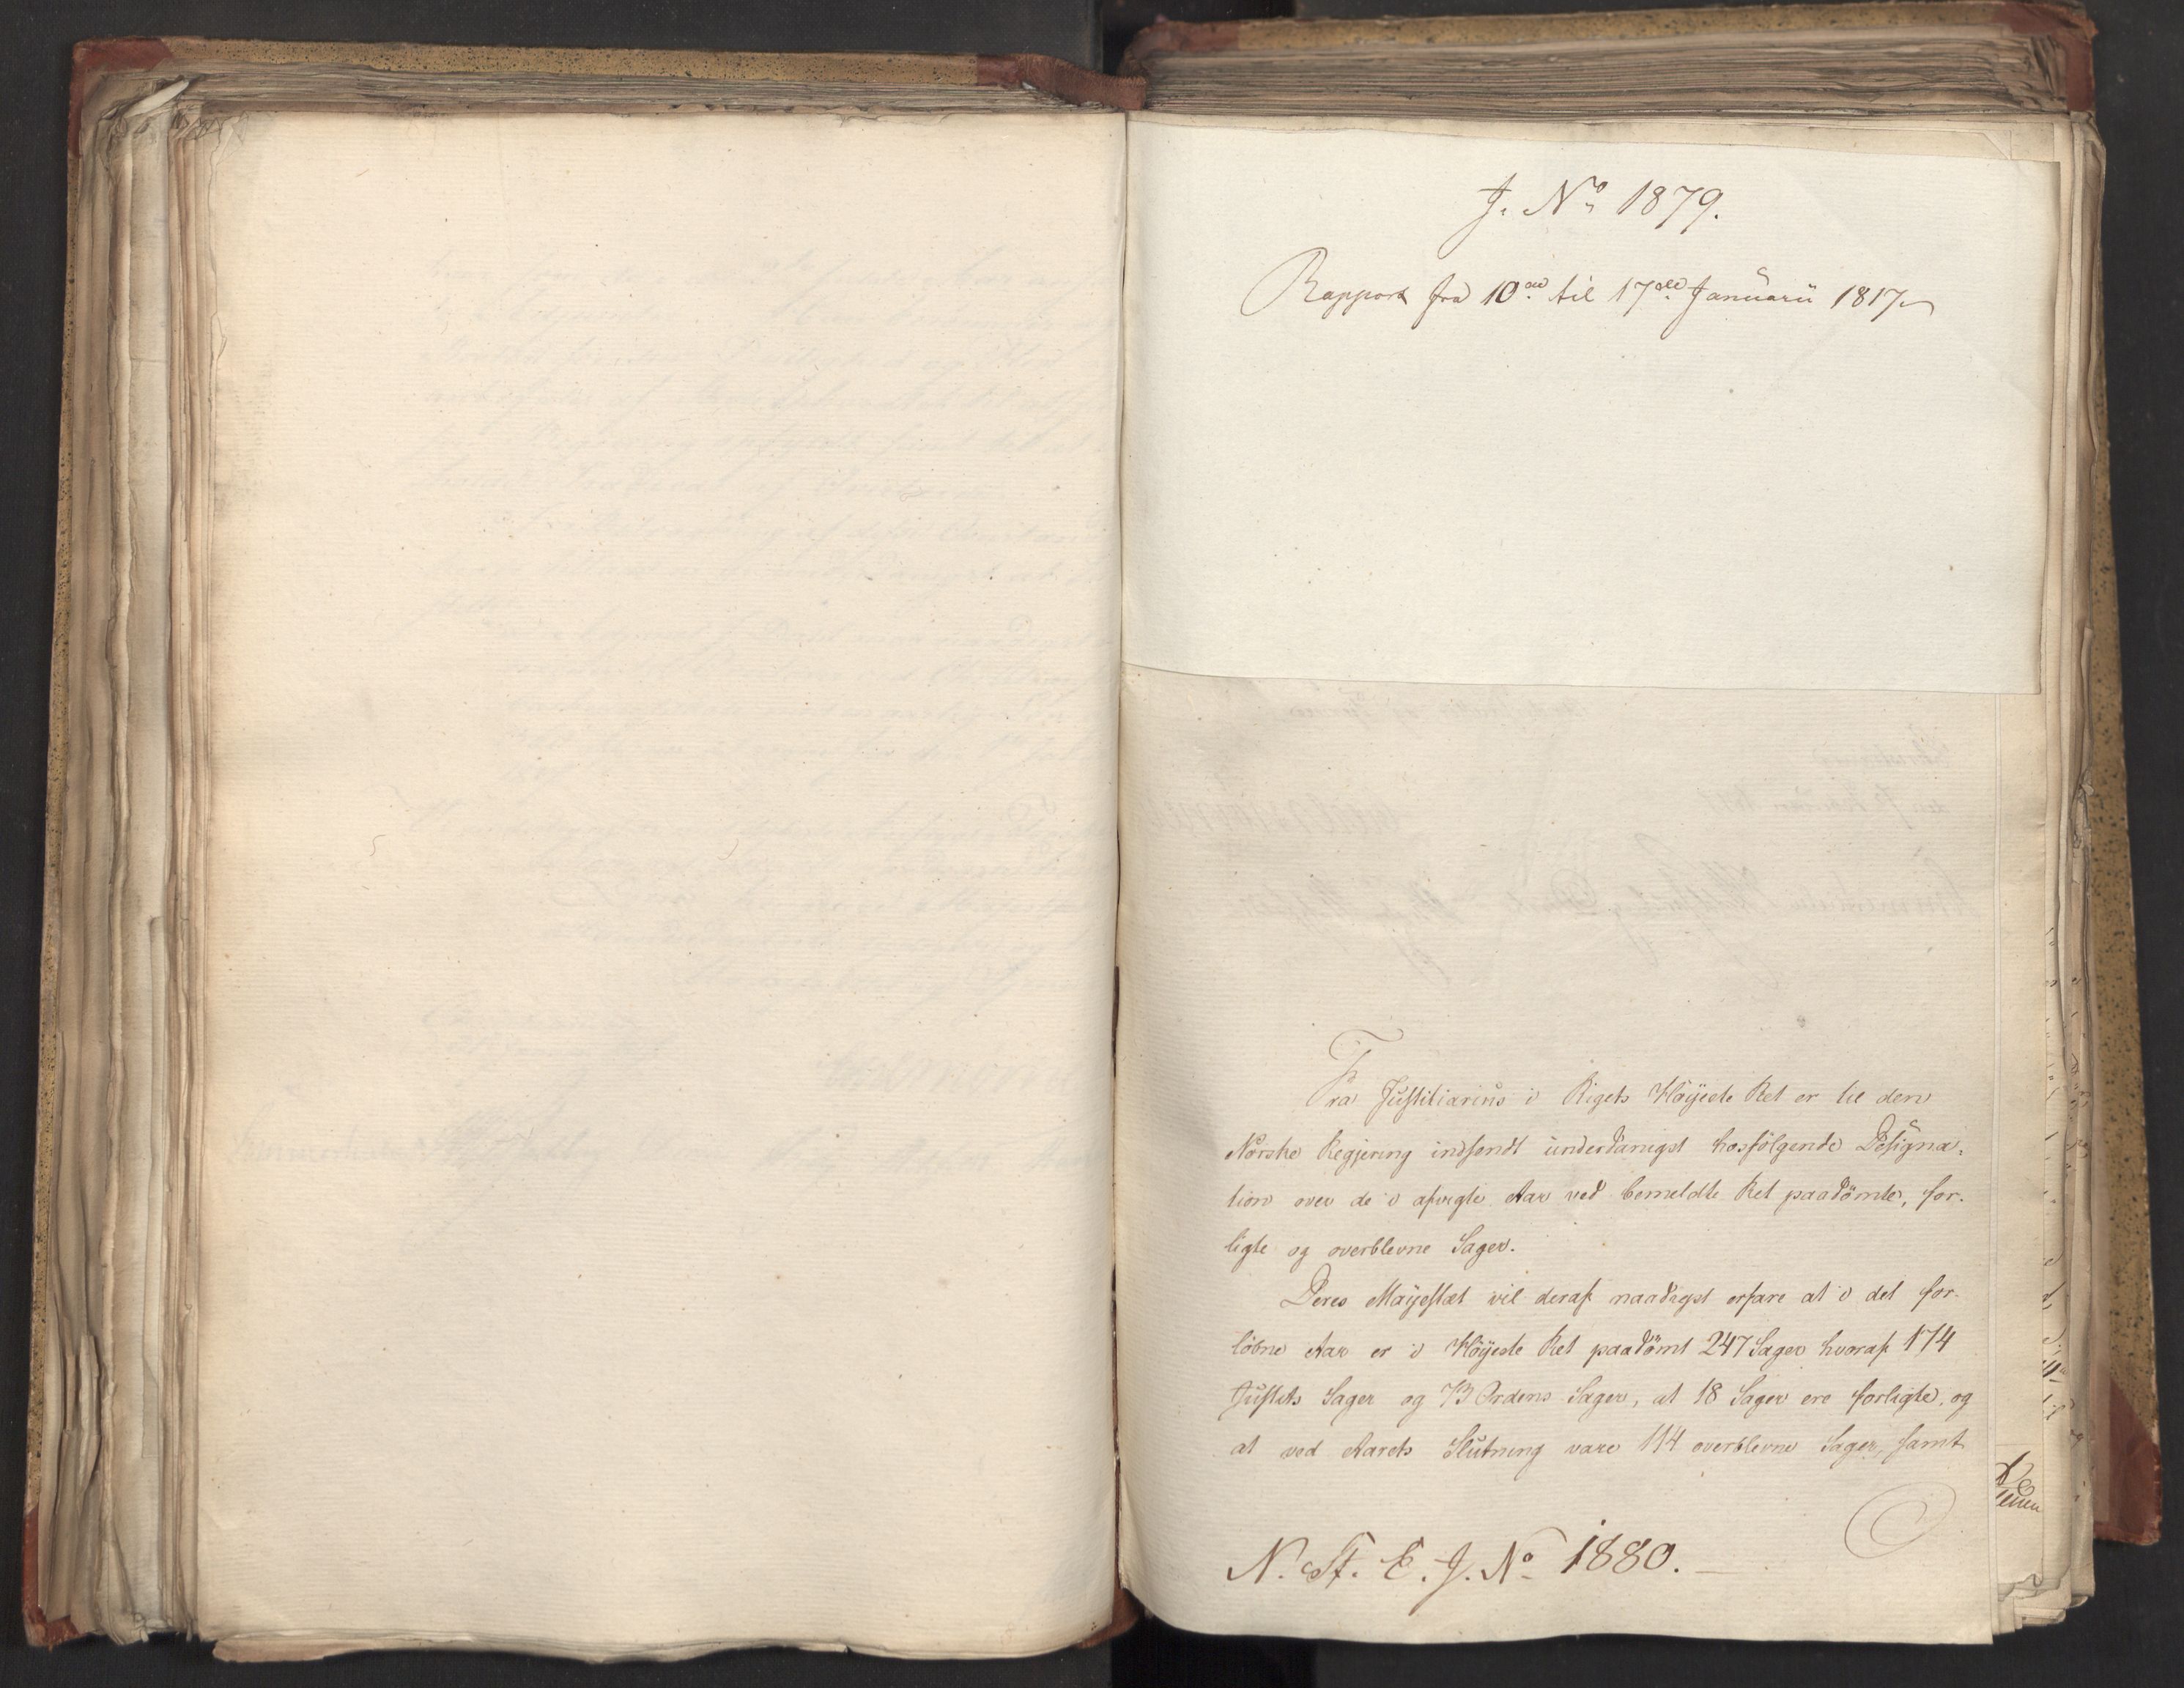 J. No 1879.
Rapport fra 10de til 17de Januarii 1817
Fra Justitiarius i Rigets Höyeste Ret er til den
Norske Regjering indsendt underdanigst hosfölgende Designa-
tion over de i afvigte Aar ved bemeldte Ret paadömte, for-
ligte og overblevne Sager.
Deres Mayestæt vil deraf naadigst erfare at i det for-
löbne Aar er i Höyeste Ret paadömt 247 Sager hvoraf 174
Justits Sager og 73 Ordens Sager, at 18 Sager ere forligte, og
at ved Aarets Slutning vare 114 overblevne Sager, samt
N. St. E. J. No 1880.